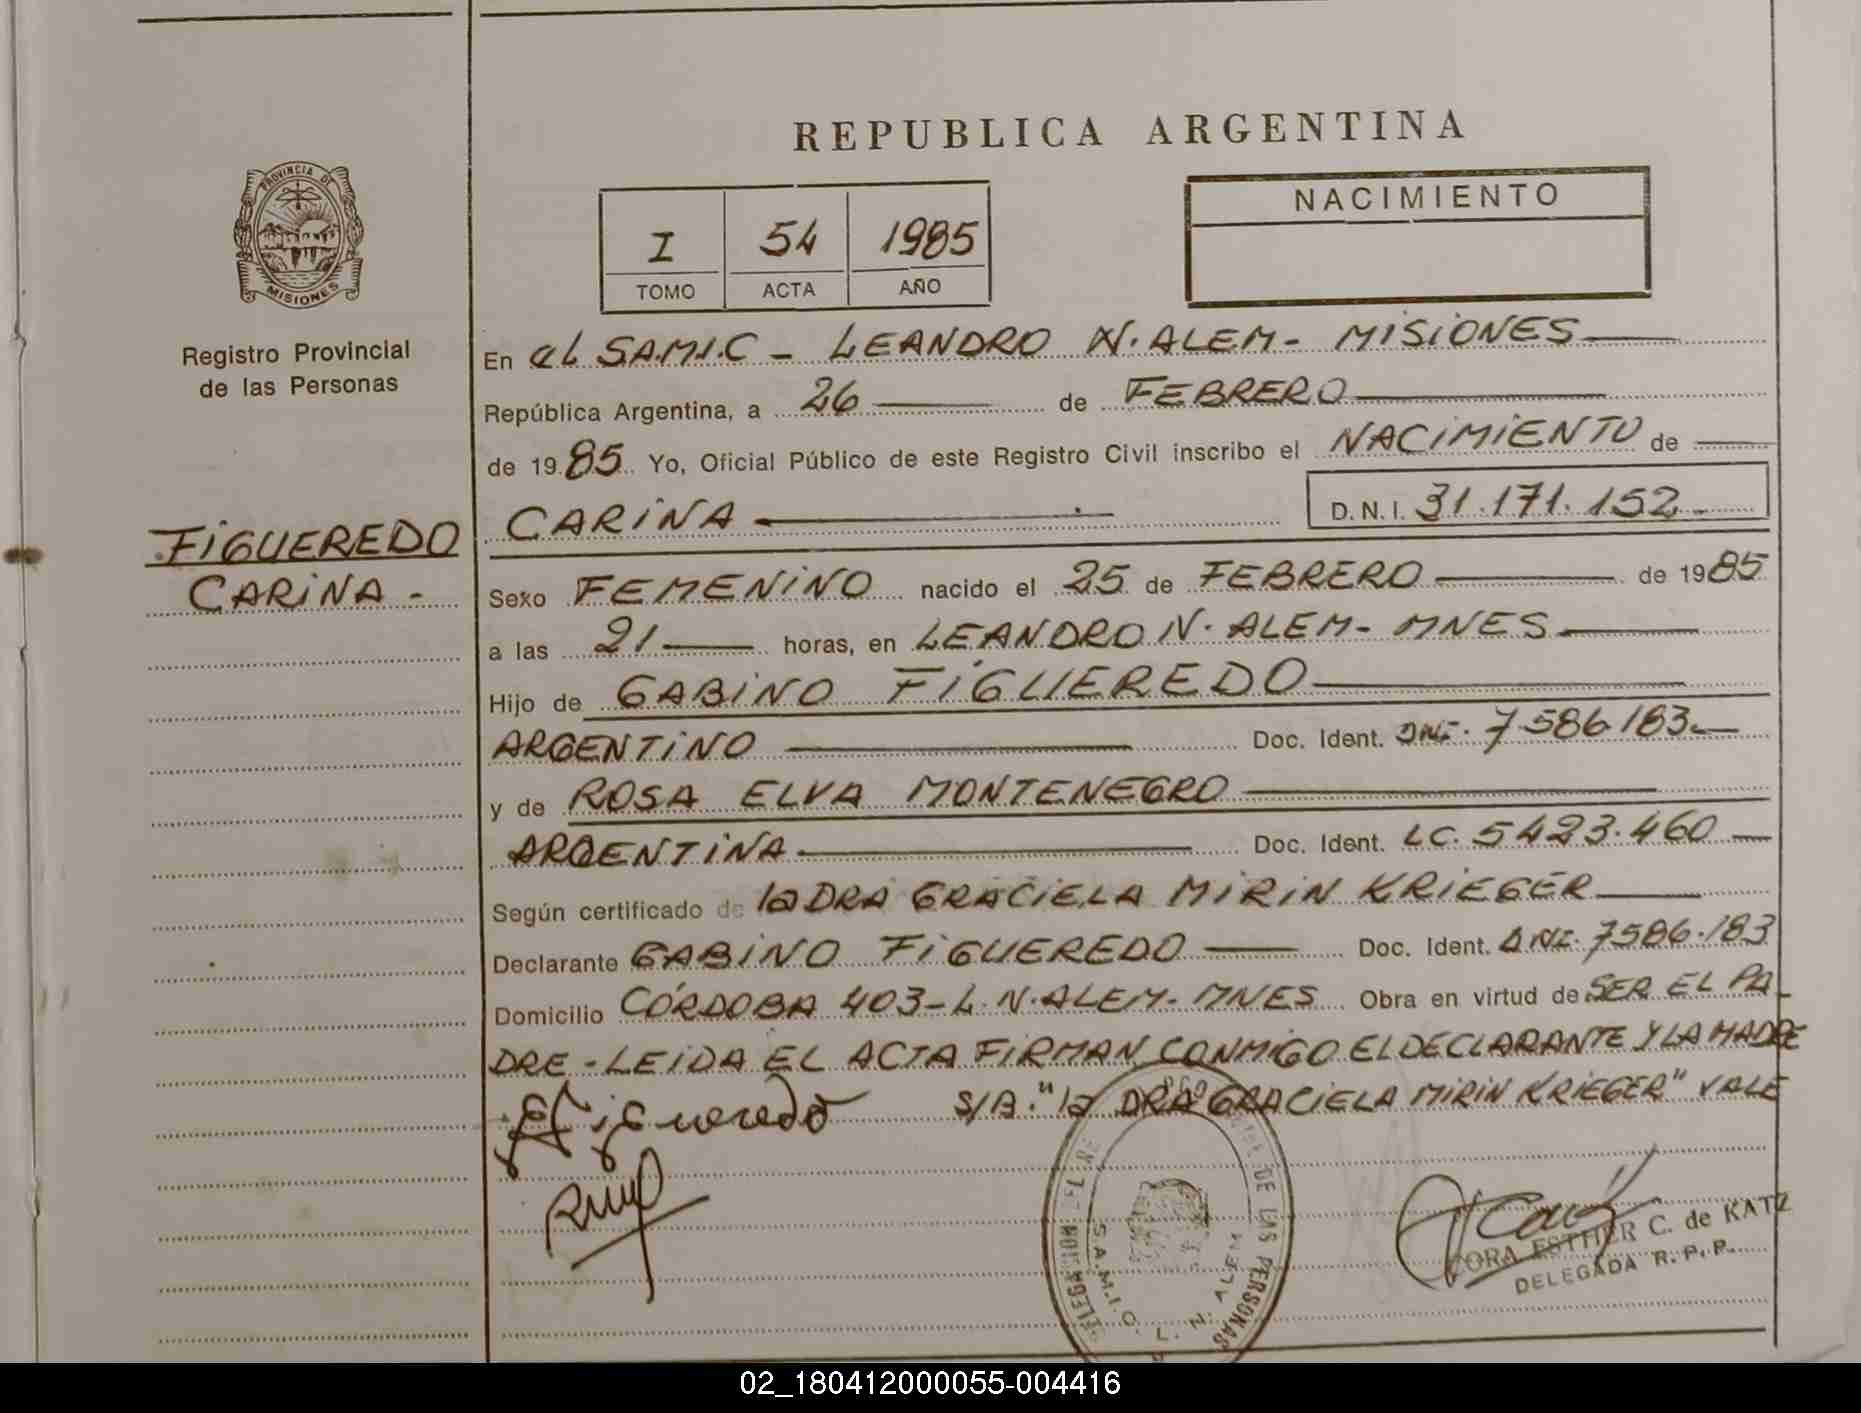 REPUBLICA ARGENTINA
PROVINCIA DE
MISIONES
Registro Provincial
de las Personas
FIGUEREDO
CARINA -
I 54 1985
TOMO ACTA AÑO
NACIMIENTO
En el SAM.I.C - LEANDRO N. ALEM - MISIONES
República Argentina, a 26 de FEBRERO
de 1985 Yo, Oficial Público de este Registro Civil inscribo el NACIMIENTO de
CARINA D.N.I. 31.171.152-
Sexo FEMENINO nacido el 25 de FEBRERO de 1985
a las 21 horas, en LEANDRO N. ALEM - MNES
Hijo de GABINO FIGUEREDO
ARGENTINO Doc. Ident. DNI. 7586183
y de ROSA ELVA MONTENEGRO
ARGENTINA Doc. Ident. LC. 5423.460
Según certificado de la DRA GRACIELA MIRIN KRIEGER
Declarante GABINO FIGUEREDO Doc. Ident. DNI. 7586.183
Domicilio CÓRDOBA 403 - L. N. ALEM - MNES Obra en virtud de SER EL PA-
DRE - LEIDA EL ACTA FIRMAN CONMIGO EL DECLARANTE Y LA MADRE
S/B. "la DRA GRACIELA MIRIN KRIEGER" VALE
Figueredo
DE LAS PERSONAS
S.A.M.I.C. L. N. ALEM
CORA ESTHER C. de KATZ
DELEGADA R. P. P.
02_180412000055-004416